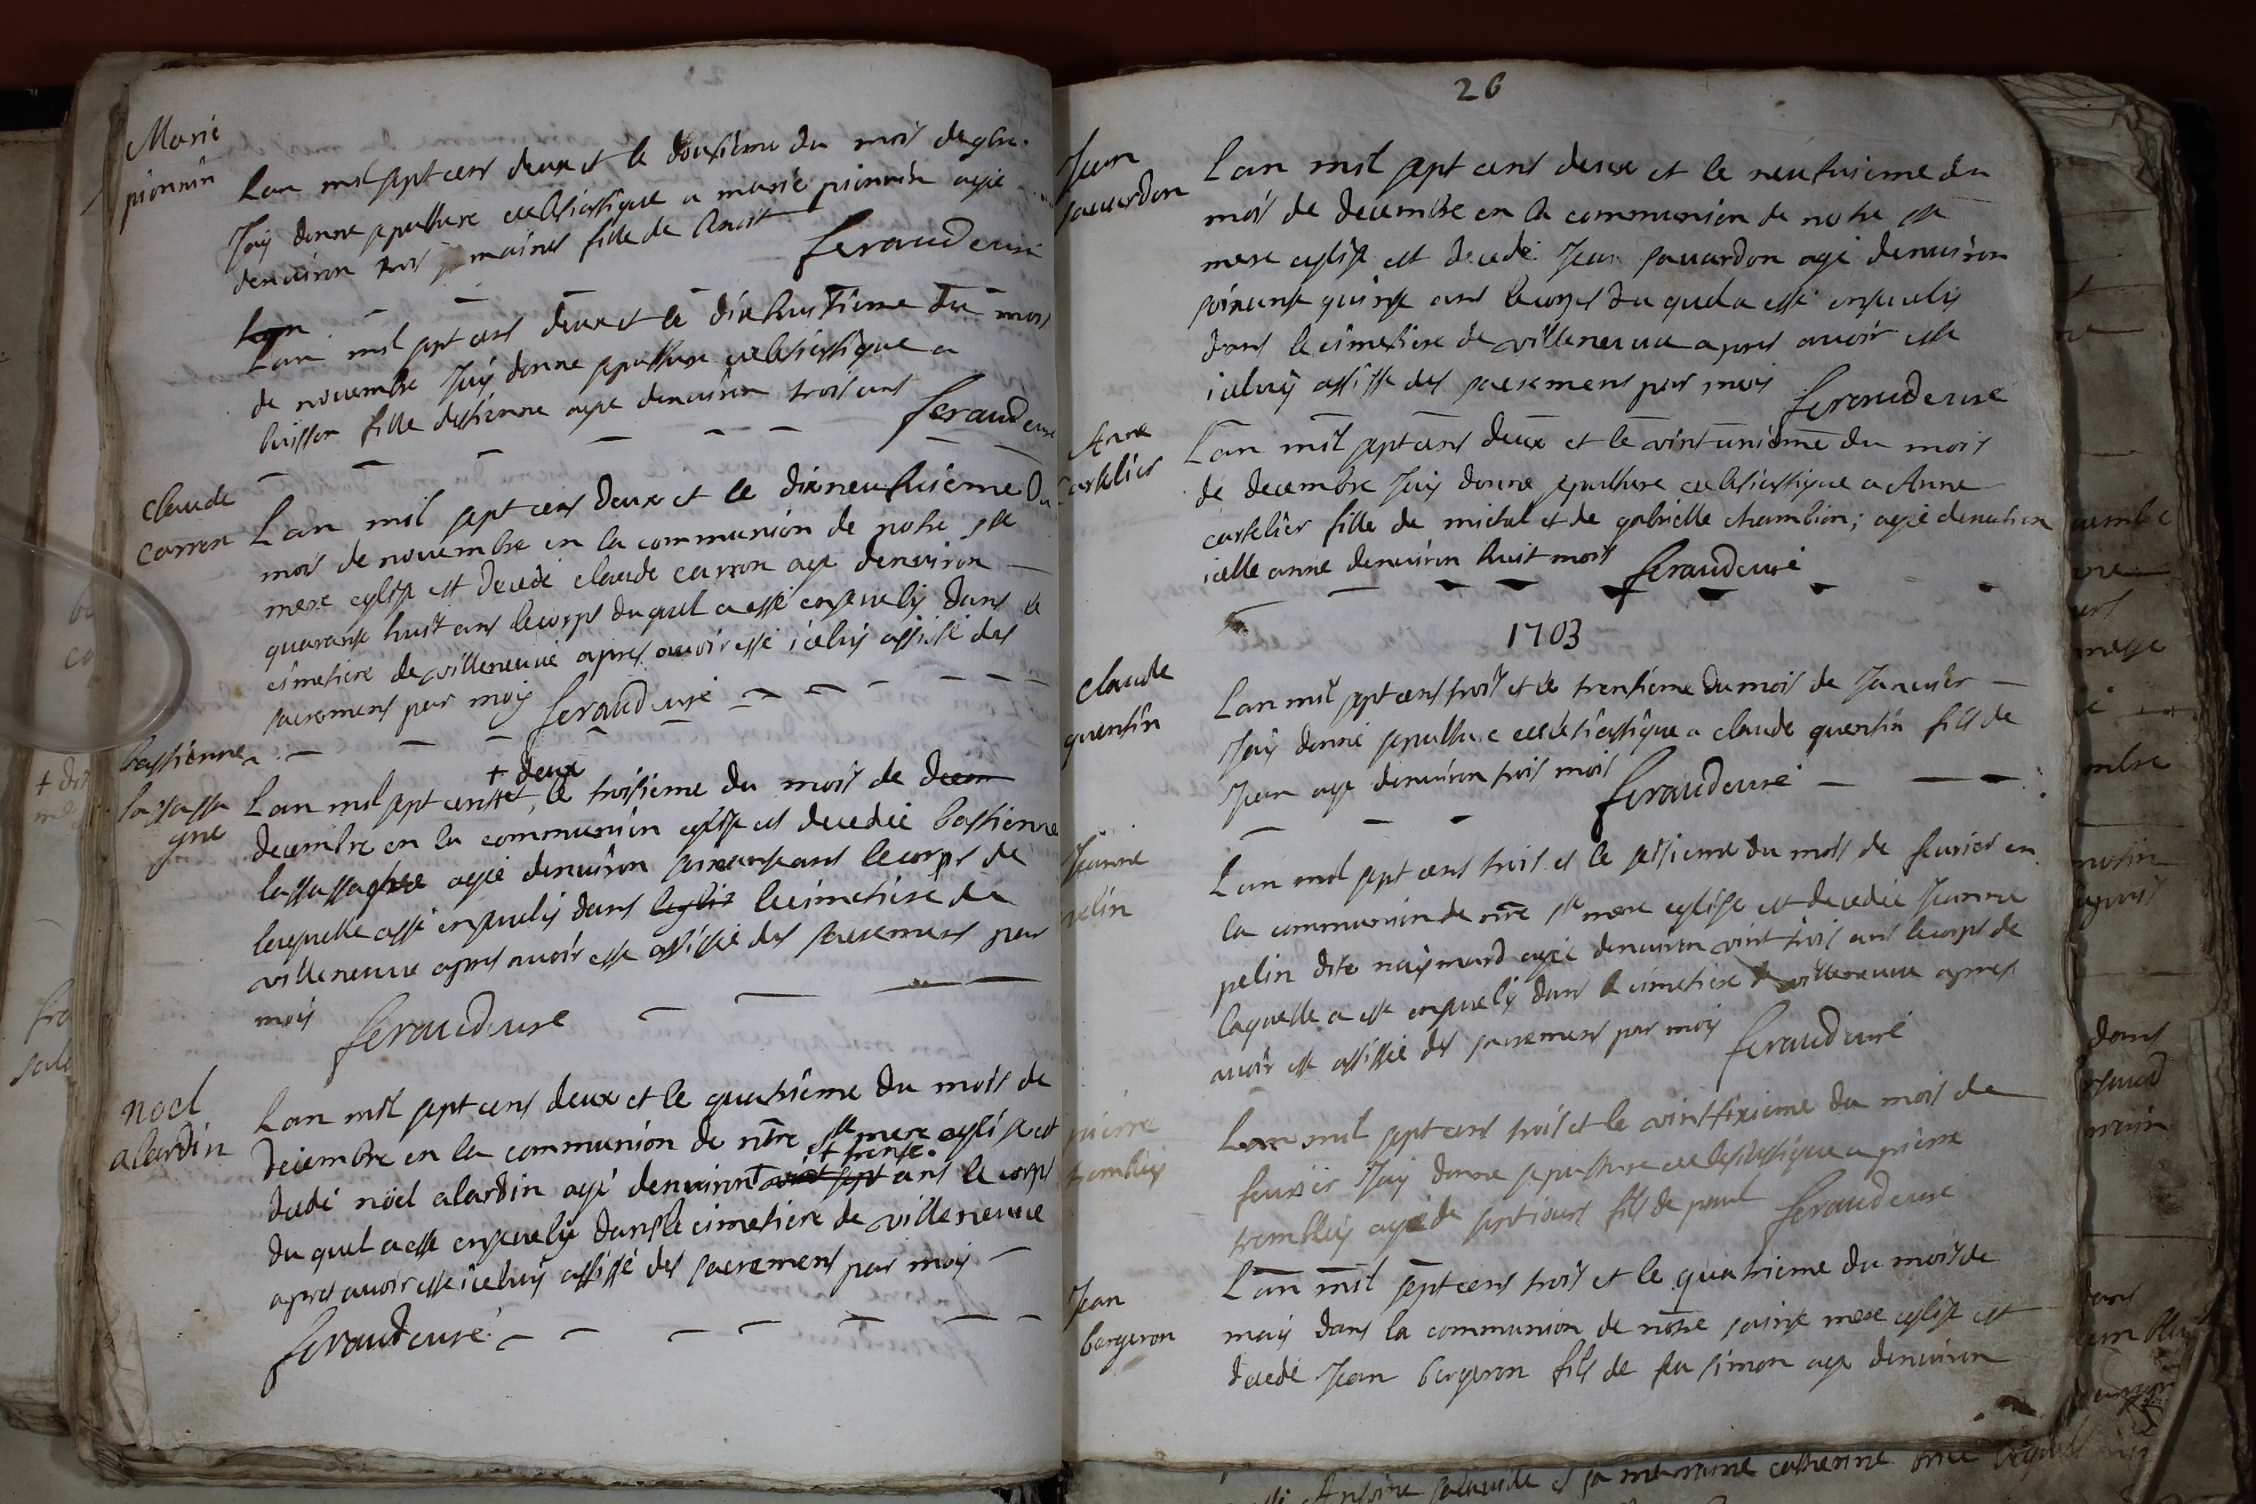 Marie
pionnin
Lan mil sept cens deux et le dousieme du mois de 9bre.
Jay donne sepulture ecclesiastique a marie pionnin agée
denuiron trois semaines fille de benoit
feraud curé
Lan mil sept cens deux et le dix huitieme du mois
de nouembre Jay donne sepulture ecclesiastique a
buisson fille destienne agee denuiron trois ans
feraud curé
claude
carron
Lan mil sept cens deux et le dixneufuieme du
mois de nouembre en la communion de notre ste
mere eglise est decede claude carron age denuiron
quarante huit ans le corps du quel a esté enseuely dans le
cimetiere de villeneuue apres auoir esté iceluy assisté des
sacremens par moy feraud curé
bastienne
lassassa
gne
Lan mil sept cens et + deux le troisieme du mois de decem
decembre en la communion eglise est decedée bastienne
lassassagne agée denuiron soixante ans le corps de
laquelle a esté enseuely dans leglis le cimetiere de
villeneuue apres auoir esté assistée des sacremens par
moy feraud curé
noel
alardin
Lan mil sept cens deux et le quatrieme du mois de
decembre en la communion de ntre ste mere eglise est
+ trente.
dcedé noel alardin agé denuiron + vint sept ans le corps
du quel a esté enseuely dans le cimetiere de villeneuue
apres auoir esté iceluy assisté des sacremens par moy
feraud curé
26
Jean
sauardon
Lan mil sept cens deux et le neufuieme du
mois de decembre en la communion de notre ste
mere eglise est decedé Jean sauardon agé denuiron
soixante quinze ans le corps du quel a esté enseuely
dans le cimetiere de villeneuue apres auoir esté
iceluy assisté des sacremens par moy
feraud curé
Anne
cartelier
Lan mil sept cens deux et le vint unieme du mois
de decembre Jay donné sepulture ecclesiastique a Anne
cartelier fille de michel et de gabrielle chambion; agée denuiron
icelle anne denuiron huit mois feraud curé
1703
claude
quentin
Lan mil sept cens trois et le trentieme du mois de Januier
Jay donné sepulture ecclesiastique a claude quentin fils de
Jean age denuiron trois mois feraud curé
Jeanne
pelin
Lan mil sept cens trois et le sesieme du mois de feurier en
la communion de ntre ste mere eglise est decedée Jeanne
pelin dite naymard agée denuiron vint trois ans le corps de
laquelle a esté enseuely dans le cimetiere de villeneuue apres
auoir esté assistée des sacremens par moy feraud curé
pierre
trembley
Lan mil sept cens trois et le vint sixieme du mois de
feurier Jay donne sepulture ecclesiastique a pierre
trembley agé de sept iours fils de paul feraud curé
Jean
bergeron
Lan mil sept cens trois et le quatrieme du mois de
may dans la communion de notre sainte mere eglise est
decedé Jean bergeron fils de feu simon age denuiron